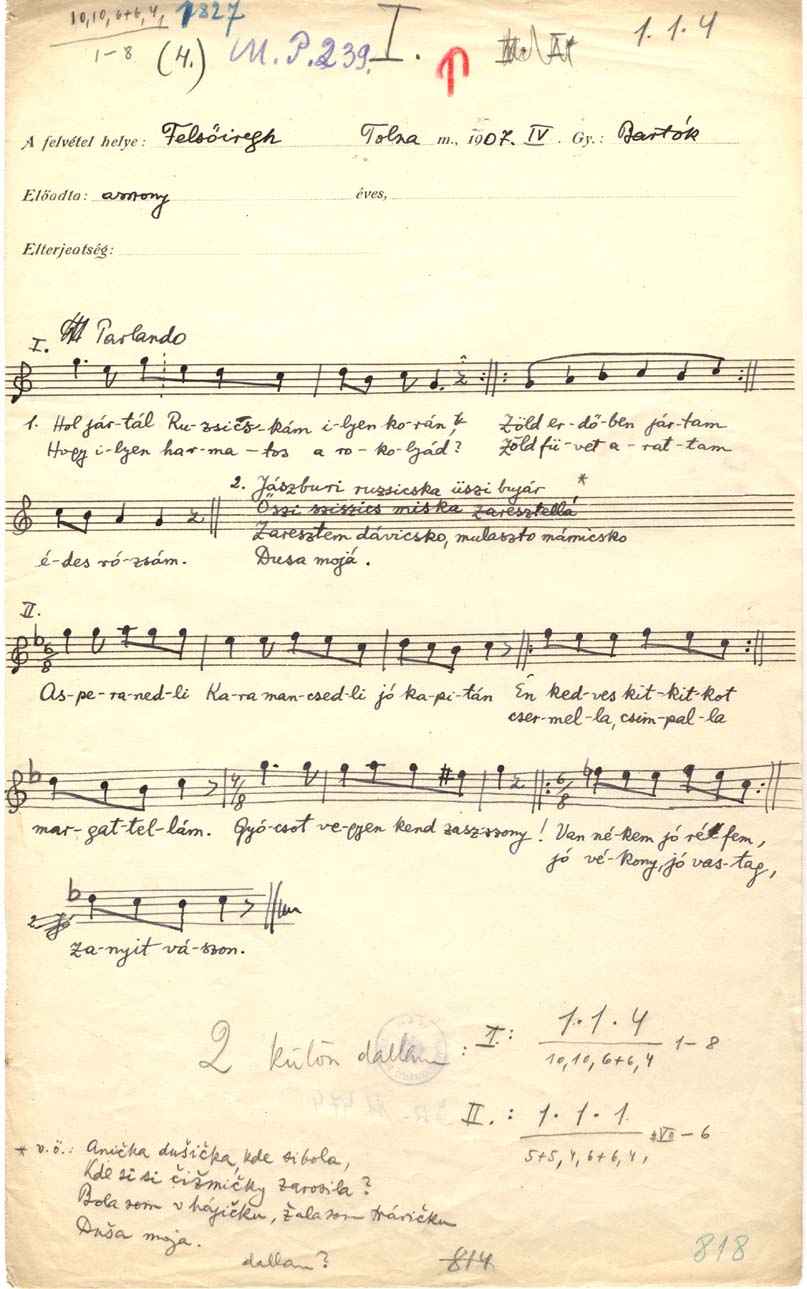 10,10,6+6,4, 1827
1-8 (4.) M.P.239. I. 1.1.4
A felvétel helye: Felsőiregh Tolna m., 1907. IV. Gy.: Bartók
Előadta: asszony éves,
Elterjedtség:
I. Parlando
1. Hol jár-tál Ru-zsics-kám i-lyen ko-rán,* Zöld er-dő-ben jár-tam
Hogy i-lyen har-ma-tos a ro-ko-lyád? Zöld fü-vet a-rat-tam
2. Jászburi ruzsicska üszi bujár *
Őszi sziszics miska zaresztellá
é-des ró-zsám. Zaresztem dávicsko, mulaszto mámicsko
Dusa mojá.
II.
6/8
As-pe-ra-ned-li Ka-ra man-csed-li jó ka-pi-tán Én ked-ves kit-kit-kot
cser-mel-la, csim-pal-la
4/8 6/8
mar-gat-tel-lám. Gyó-csot ve-gyen kend sasz-szony! Van né-kem jó rét-fem,
jó vé-kony, jó vas-tag,
2. Jó
za-nyit vá-szon.
2 külön dallam: I: 1.1.4
10,10,6+6,4 1-8
II.: 1.1.1
5+5,4,6+6,4, VII-6
* v.ö.: Anička dušička, kde si bola,
Kde si si čižmičky zarosila?
Bola som v hájičku, žala som trávičku
Duša moja.
dallam? 814 818